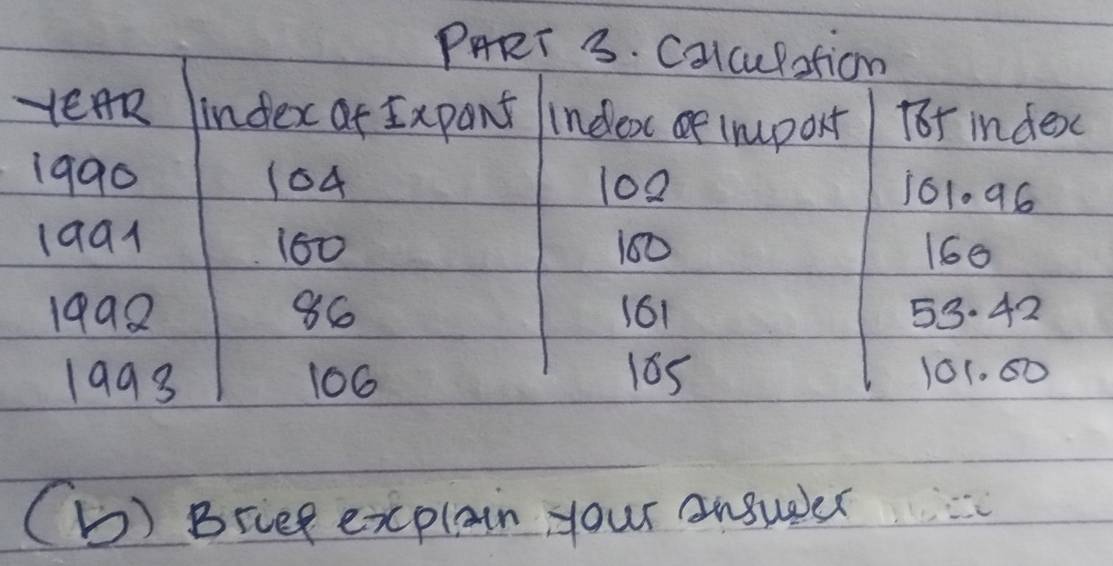 PART 3. Calculation
YEAR Index of Export Index of Import ToT index
1990 104 102 101.96
1991 100 100 100
1992 86 161 53.42
1993 106 105 101.00
(b) Brief explain your answer